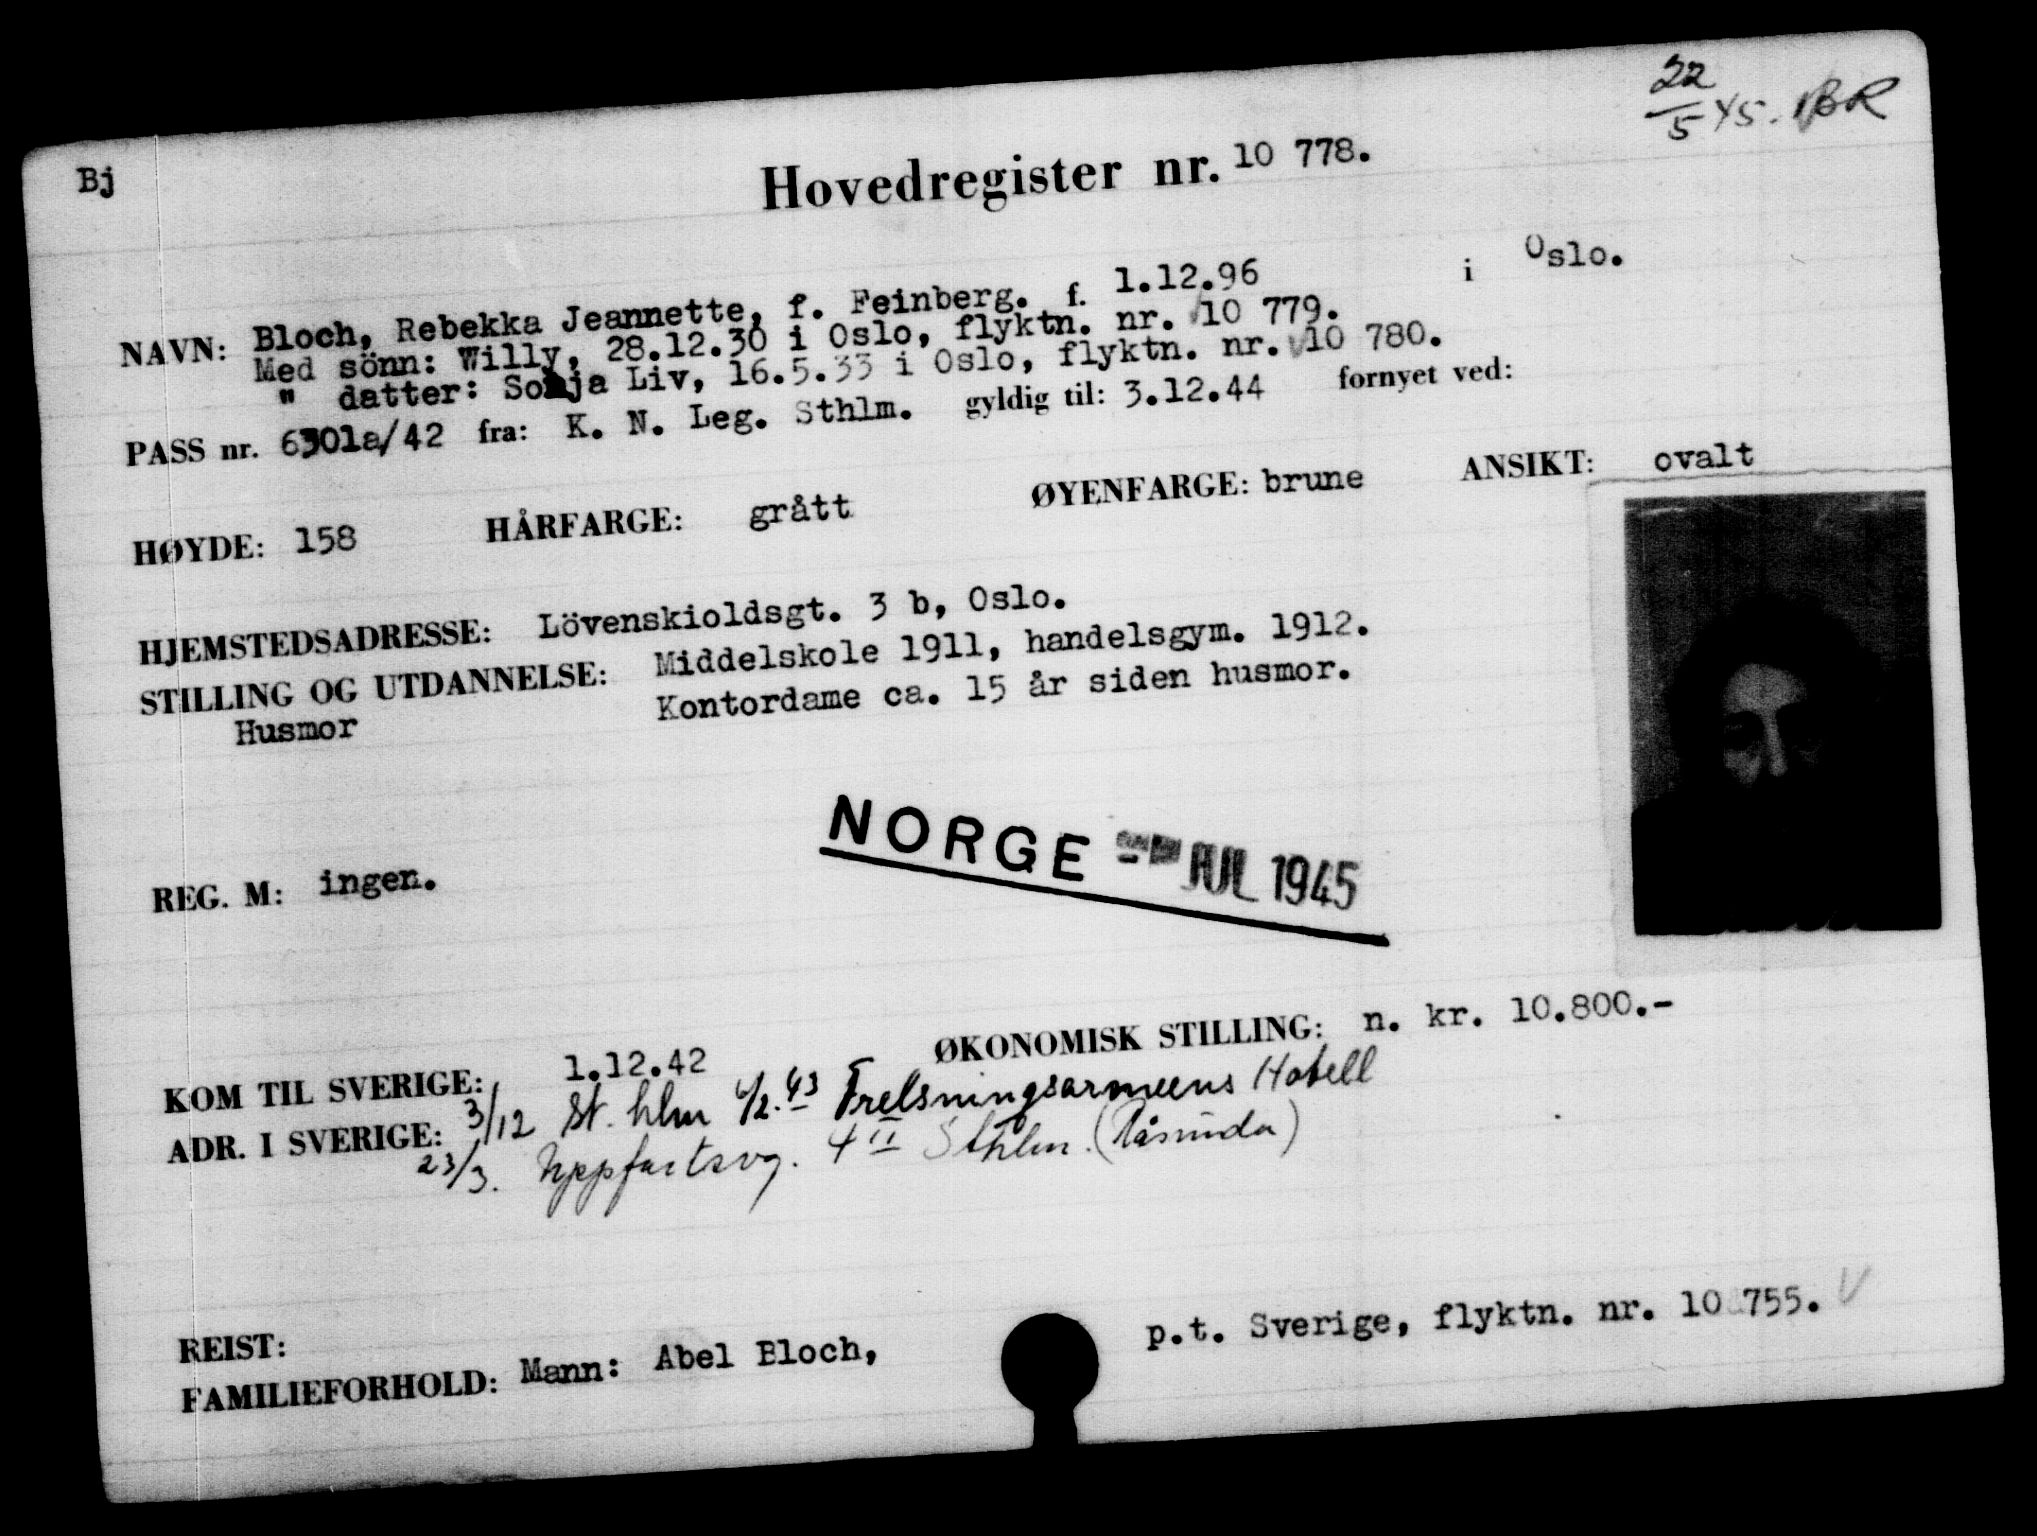 22/5 45. BR
Bj
Hovedregister nr. 10 778.
NAVN: Bloch, Rebekka Jeannette, f. Feinberg. f. 1.12.96 i Oslo.
Med sönn: Willy, 28.12.30 i Oslo, flyktn. nr. 10 779.
" datter: Sonja Liv, 16.5.33 i Oslo, flyktn. nr. 10 780.
PASS nr. 6301a/42 fra: K. N. Leg. Sthlm. gyldig til: 3.12.44 fornyet ved:
HØYDE: 158 HÅRFARGE: grått ØYENFARGE: brune ANSIKT: ovalt
HJEMSTEDSADRESSE: Lövenskioldsgt. 3 b, Oslo.
STILLING OG UTDANNELSE: Middelskole 1911, handelsgym. 1912.
Husmor Kontordame ca. 15 år siden husmor.
NORGE JUL 1945
REG. M: ingen.
KOM TIL SVERIGE: 1.12.42 ØKONOMISK STILLING: n. kr. 10.800.-
ADR. I SVERIGE: 3/12 St. hlm 4/2.43 Frelsningsarmeens Hotell
23/3. Uppfartsvg. 4 II Sthlm. (Råsunda)
REIST:
FAMILIEFORHOLD: Mann: Abel Bloch, p.t. Sverige, flyktn. nr. 10 755. V